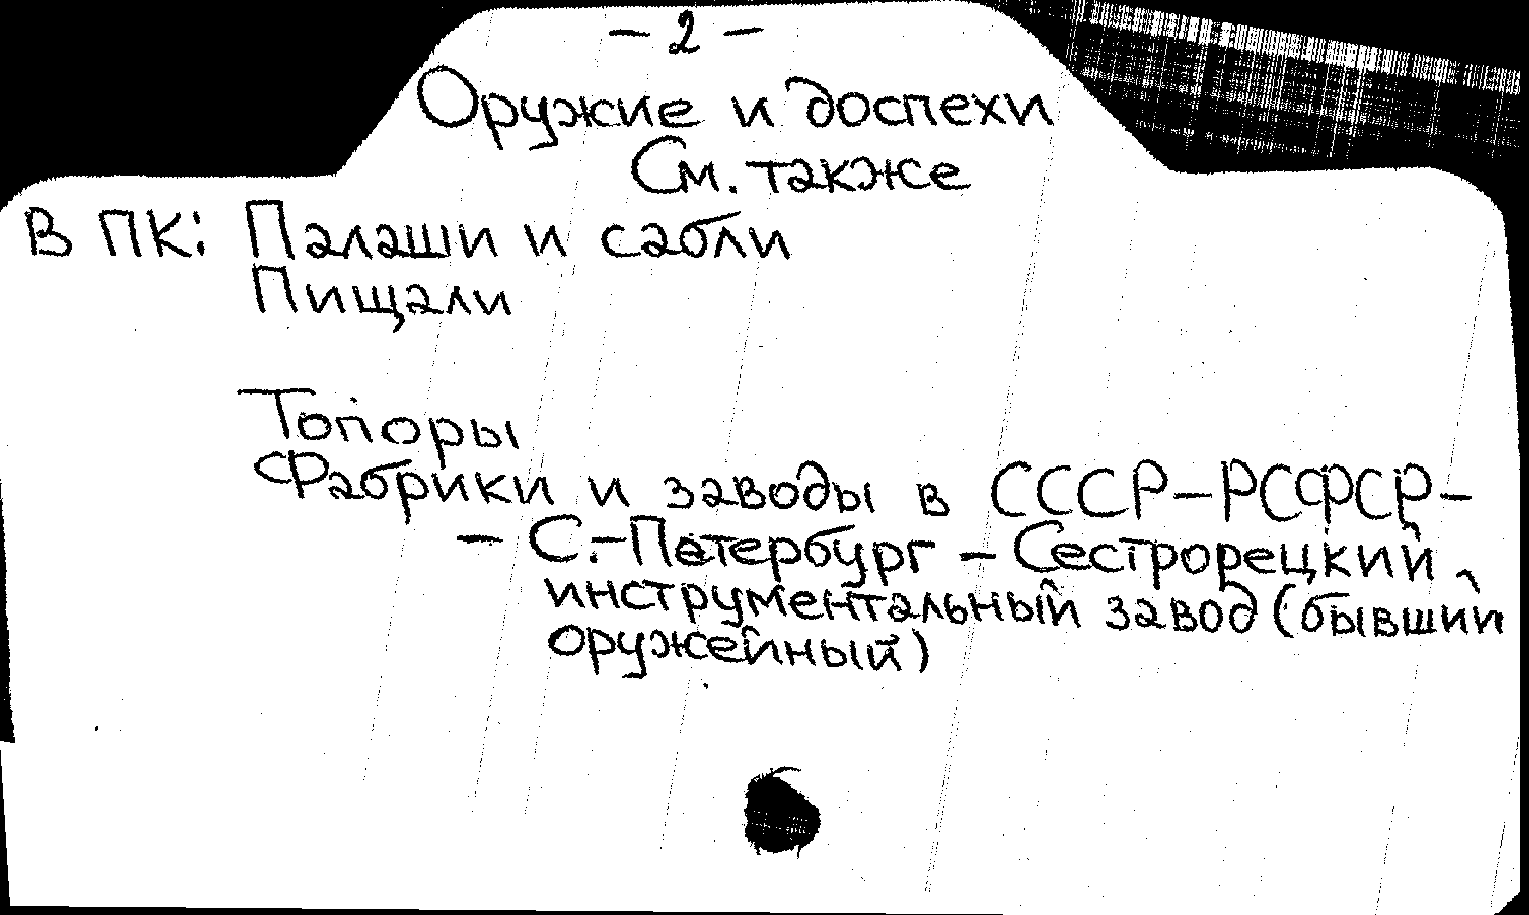 - 2 -
Оружие и доспехи
См. также
В ПК: Палаши и сабли
Пищали
Топоры
Фабрики и заводы в СССР-РСФСР-
- С.-Петербург - Сестрорецкий
инструментальный завод (бывший
оружейный)